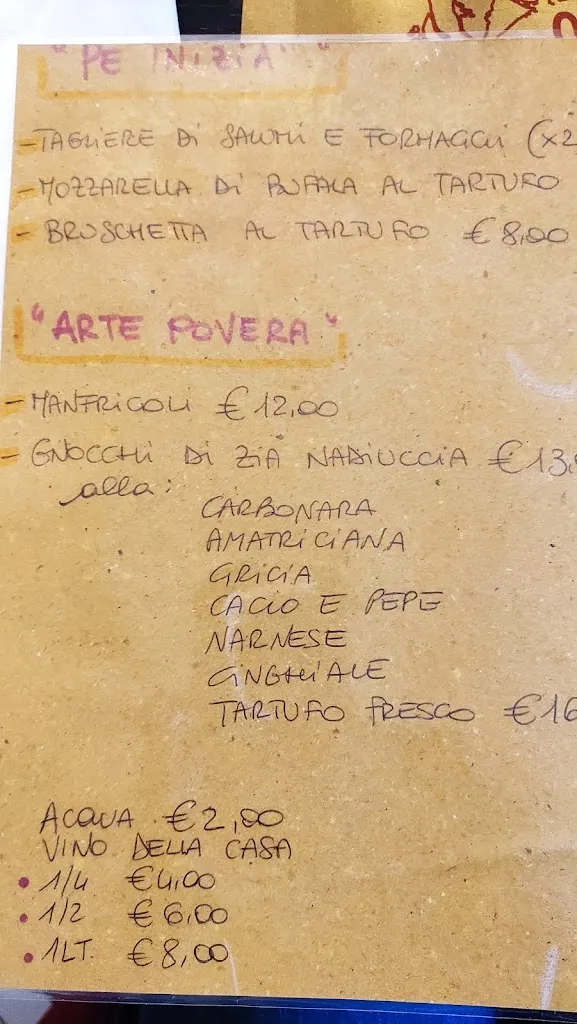 "PE INIZIA' "
- TAGLIERE DI SALUMI E FORMAGGI (x2
- MOZZARELLA DI BUFALA AL TARTUFO
- BRUSCHETTA AL TARTUFO € 8,00
"ARTE POVERA"
- MANFRICOLI € 12,00
- GNOCCHI DI ZIA NADIUCCIA € 13,
alla:
CARBONARA
AMATRICIANA
GRICIA
CACIO E PEPE
NARNESE
CINGHIALE
TARTUFO FRESCO € 16
ACQUA . € 2,00
VINO DELLA CASA
• 1/4 € 4,00
• 1/2 € 6,00
• 1LT. € 8,00